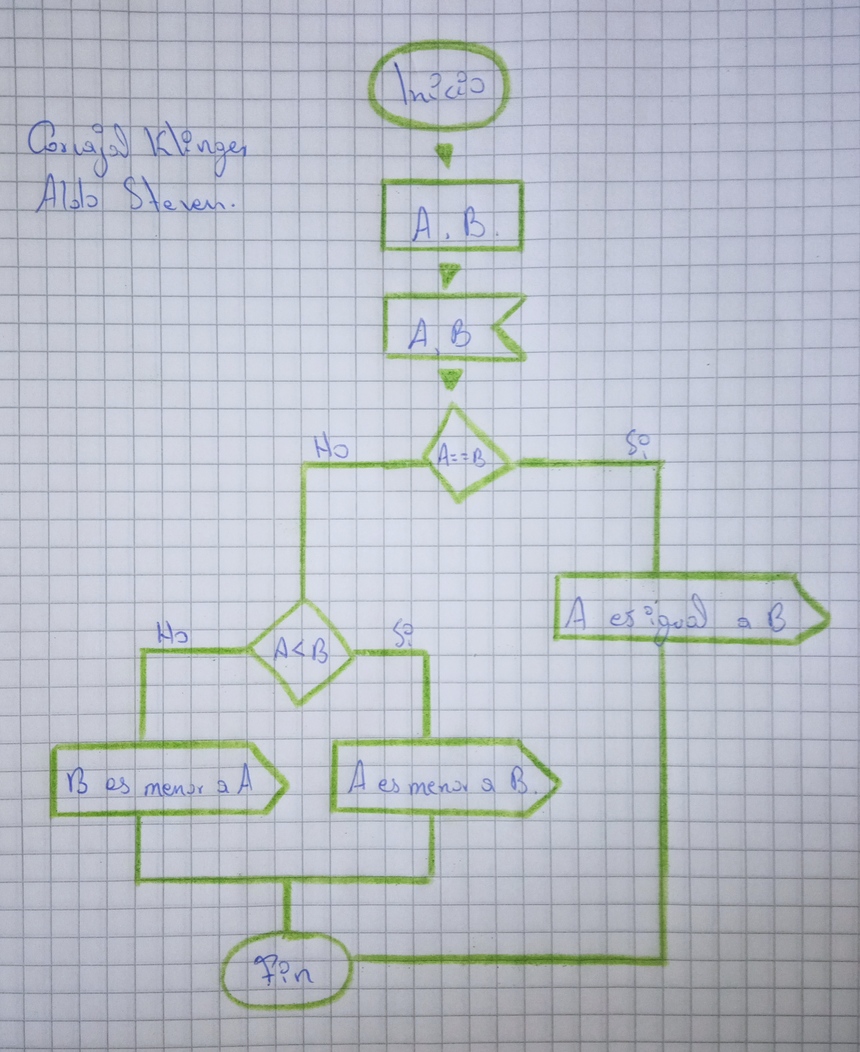 Inicio
Carvajal Klinger
Aldo Steven.
A, B.
A, B
A==B
No
Si
A es igual a B
A<B
No
Si
B es menor a A
A es menor a B.
Fin